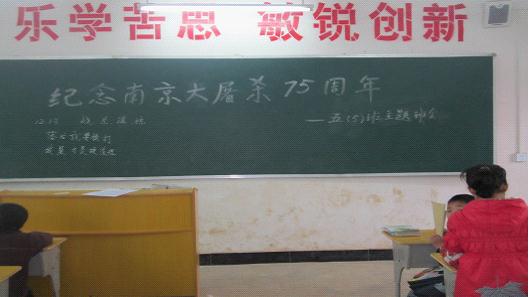 乐学苦思 敏锐创新
纪念南京大屠杀75周年
——五(5)班主题班会
12.13
落后就要挨打